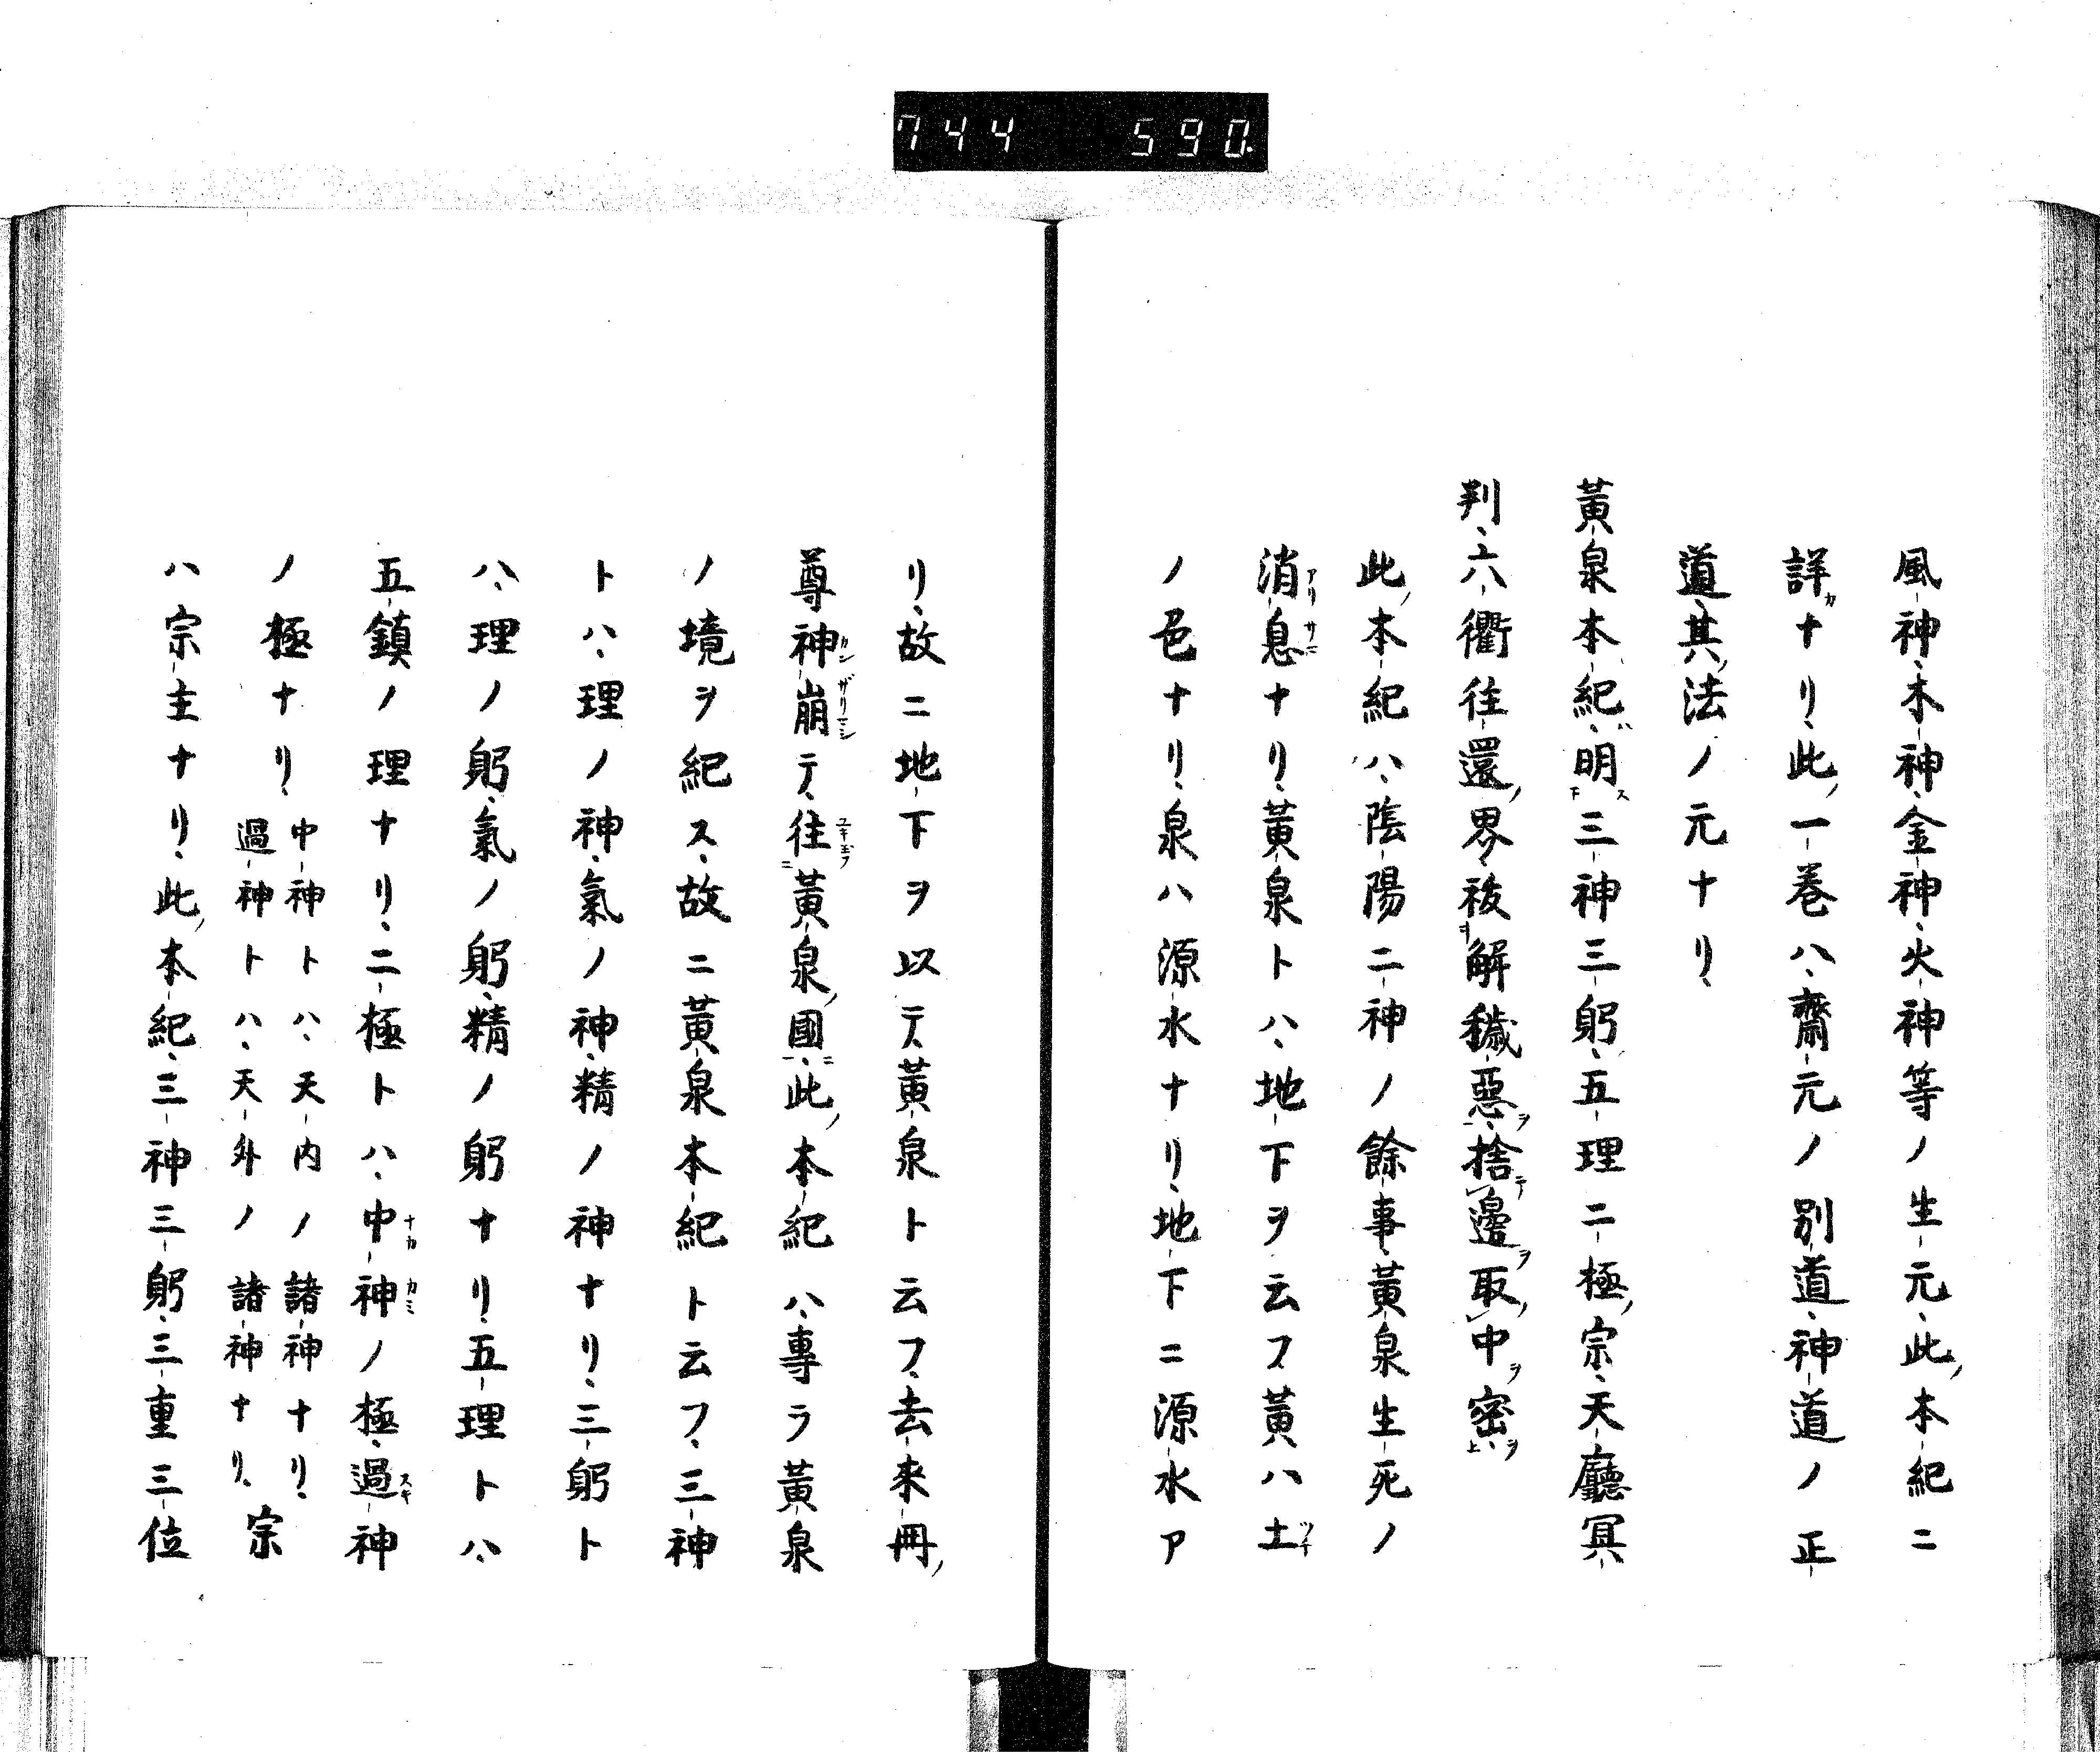 744 590
風神、木神、金神、火神等ノ生元、此本紀ニ
詳カナリ、此一巻ハ、齋元ノ別道、神道ノ正
道、其法ノ元ナリ、
黃泉本紀、明三神三躬、五理二極、宗、天廳冥
判、六衢往還、界、祓解穢惡、捨邊取中密
此本紀ハ、陰陽二神ノ餘事、黃泉生死ノ
消息ナリ、黃泉トハ、地下ヲ云フ、黃ハ土
ノ色ナリ、泉ハ源水ナリ、地下ニ源水ア
リ、故ニ地下ヲ以テ、黃泉ト云フ、去来冊
尊神崩テ、往黃泉國、此本紀ハ、專ラ黃泉
ノ境ヲ紀ス、故ニ黃泉本紀ト云フ、三神
トハ、理ノ神、氣ノ神、精ノ神ナリ、三躬ト
ハ、理ノ躬、氣ノ躬、精ノ躬ナリ、五理トハ、
五鎮ノ理ナリ、二極トハ、中神ノ極、過神
ノ極ナリ、中神トハ、天内ノ諸神ナリ、過神トハ、天外ノ諸神ナリ、宗
ハ宗主ナリ、此本紀、三神三躬、三重三位